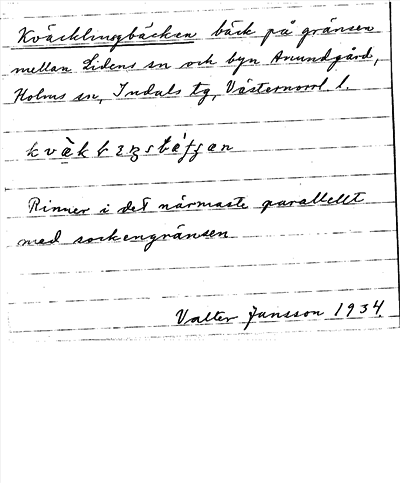 Kväcklingbäcken bäck på gränsen
mellan Lidens sn och byn Anundgård,
Holms sn, Indals tg, Västernorrl l.
Rinner i det närmaste parallellt
med sockengränsen
Valter Jansson 1934.